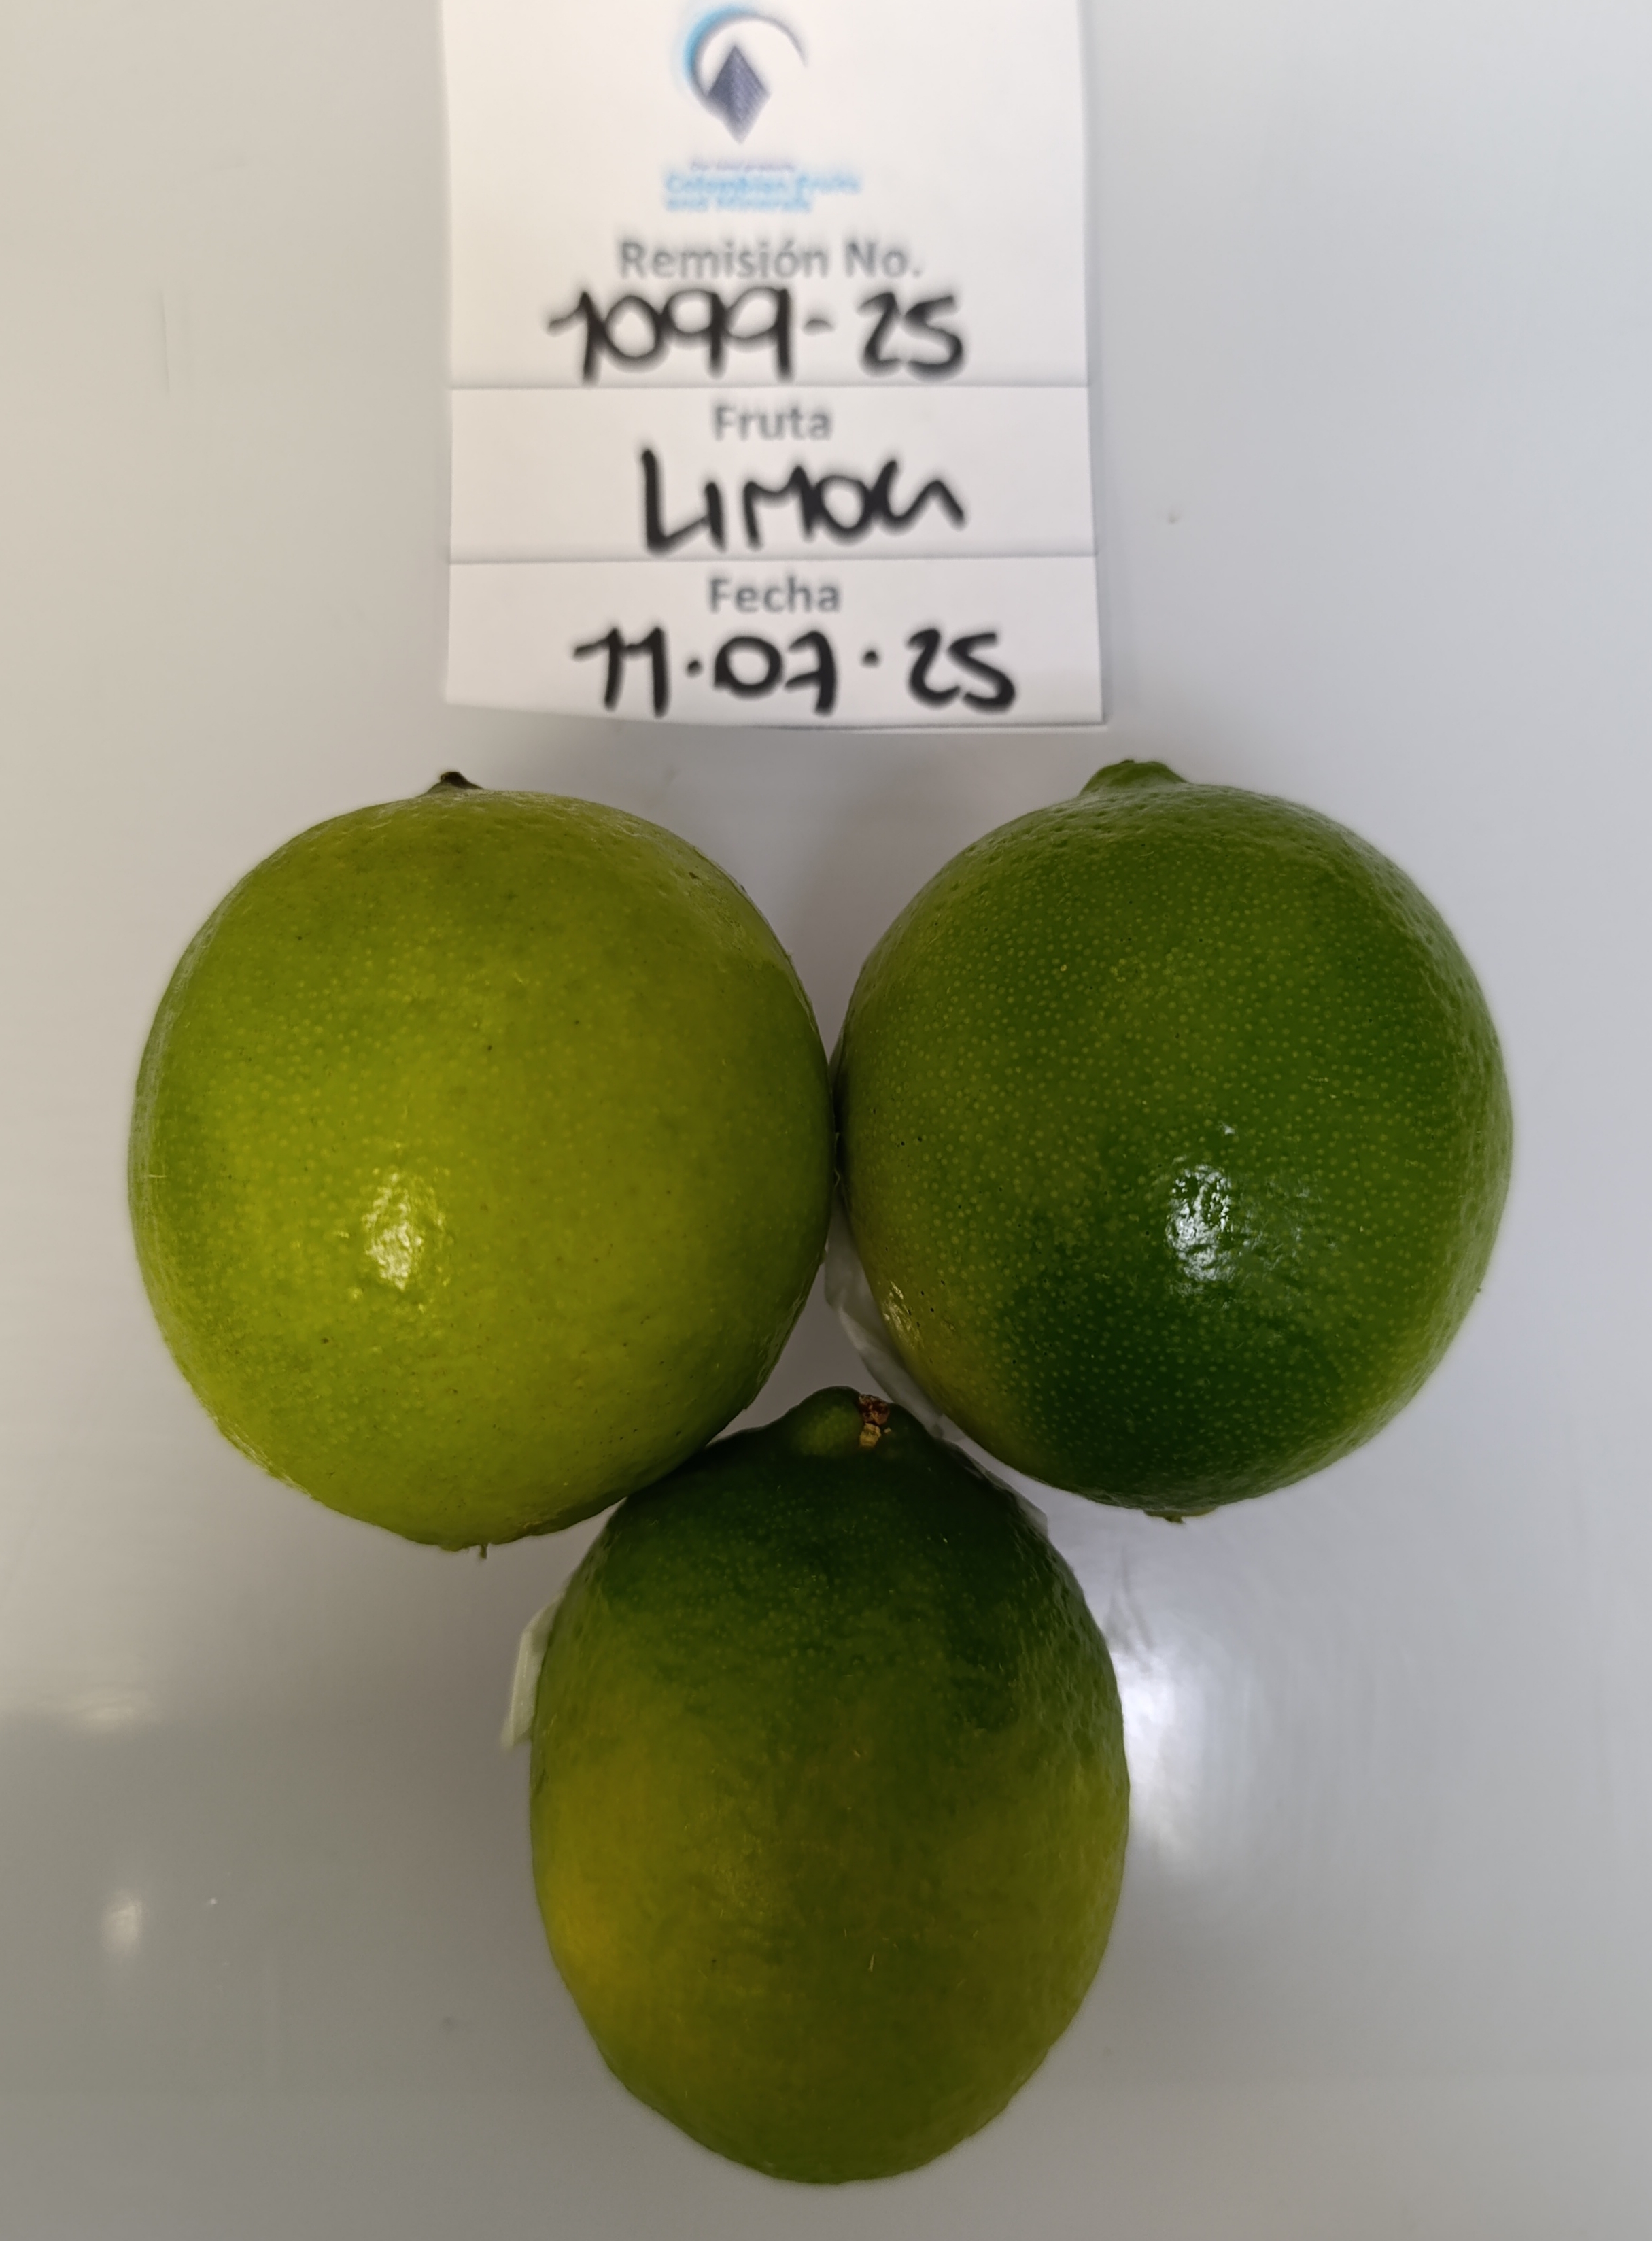 Colombian Fruits
and Minerals
Remisión No.
1099-25
Fruta
LIMON
Fecha
11.07.25